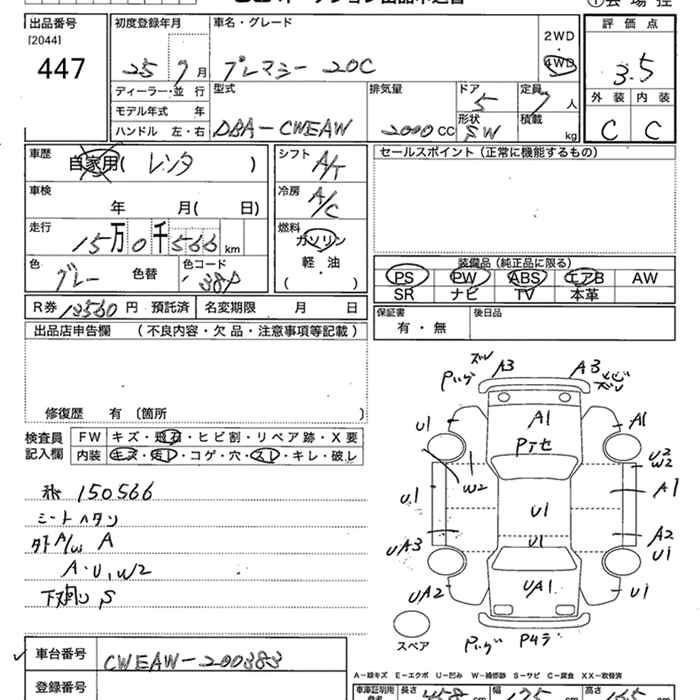 出品番号 初度登録年月 車名・グレード 評価点
[2044]
447
25 7月 プレマシー 20C 2WD 4WD 3.5
ディーラー・並 行 型式 排気量 ドア 定員 外装 内装
モデル年式 年 5 7人
ハンドル 左・右 DBA-CWEAW 2000 CC 形状 SW 積載 kg C C
車歴 自家用( レンタ ) シフト A/T セールスポイント(正常に機能するもの)
車検 年 月( 日) 冷房 A/C
走行 15万0千566 km 燃料 ガソリン
軽・油
( )
色 グレー 色替 色コード 38P
装備品(純正品に限る)
PS PW ABS エアB AW
SR ナビ TV 本革
R券 13560 円 預託済 名変期限 月 日 保証書 有・無 後日品
出品店申告欄 (不良内容・欠品・注意事項等記載)
修復歴 有 〔箇所 〕
検査員記入欄 FW キズ・飛石・ヒビ割・リペア跡・X要
内装 キズ・汚レ・コゲ・穴・スレ・キレ・破レ
150566
シートヘタリ
外A/w A
A・U,W2
下廻り S
A3 A3
U1 A1 A1
PTセ
W2 U2
W2
U1 U1 A1
UA3 U1 A2
U1
UA2 UA1 U1
スペア
車台番号 CWEAW-200383
登録番号
A-線キズ E-エクボ U-凹み W-補修跡 S-サビ C-腐食 XX-交換済
車庫証明用 長さ 458 cm 幅 175 cm 高さ 165